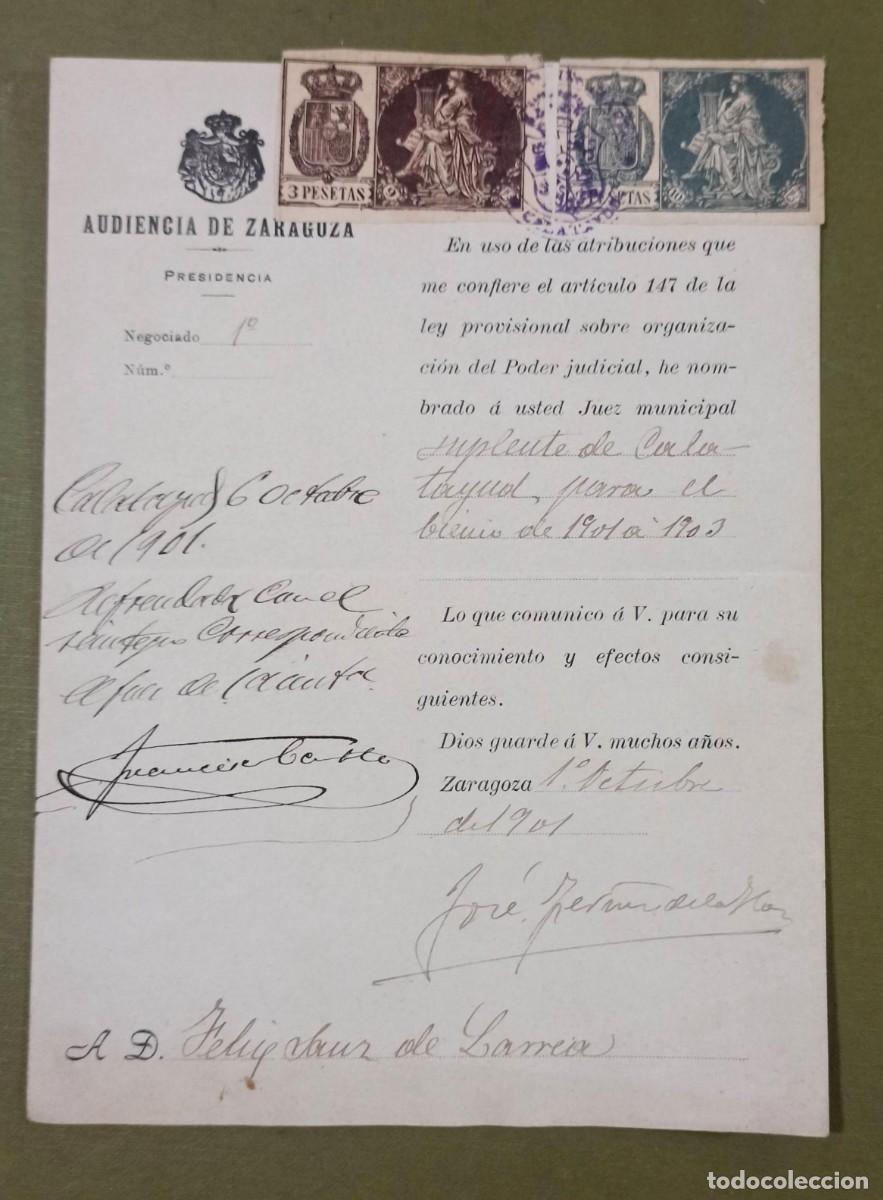 3 PESETAS
AUDIENCIA DE ZARAGOZA
PRESIDENCIA
Negociado 1º
Núm.º
En uso de las atribuciones que
me confiere el artículo 147 de la
ley provisional sobre organiza-
ción del Poder judicial, he nom-
brado á usted Juez municipal
suplente de Cala-
tayud, para el
bienio de 1901 a 1903
Lo que comunico á V. para su
conocimiento y efectos consi-
guientes.
Dios guarde á V. muchos años.
Zaragoza 1º Octubre
de 1901
José
A D. Felix Sanz de Larrea
Calatayud 6 Octubre
de 1901.
reintegro Correspondiente
Francisco
todocoleccion